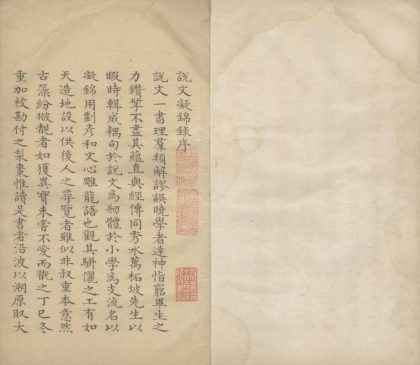 說文凝錦錄序
說文一書理羣類解謬誤曉學者達神恉窮畢生之
力鑽擘不盡其蘊直與經傳同夯水萬柘坡先生以
暇時輯成耦句於說文為刱體於小學為支流名以
凝錦用劉彥和文心雕龍語也觀其駢儷之工有如
天造地設以供後人之尋覽者雖似非叔重本意然
古藻紛披覩者如獲異寶未嘗不愛而翫之丁巳冬
重加校勘付之梨棗惟讀是書者沿波以溯原取大